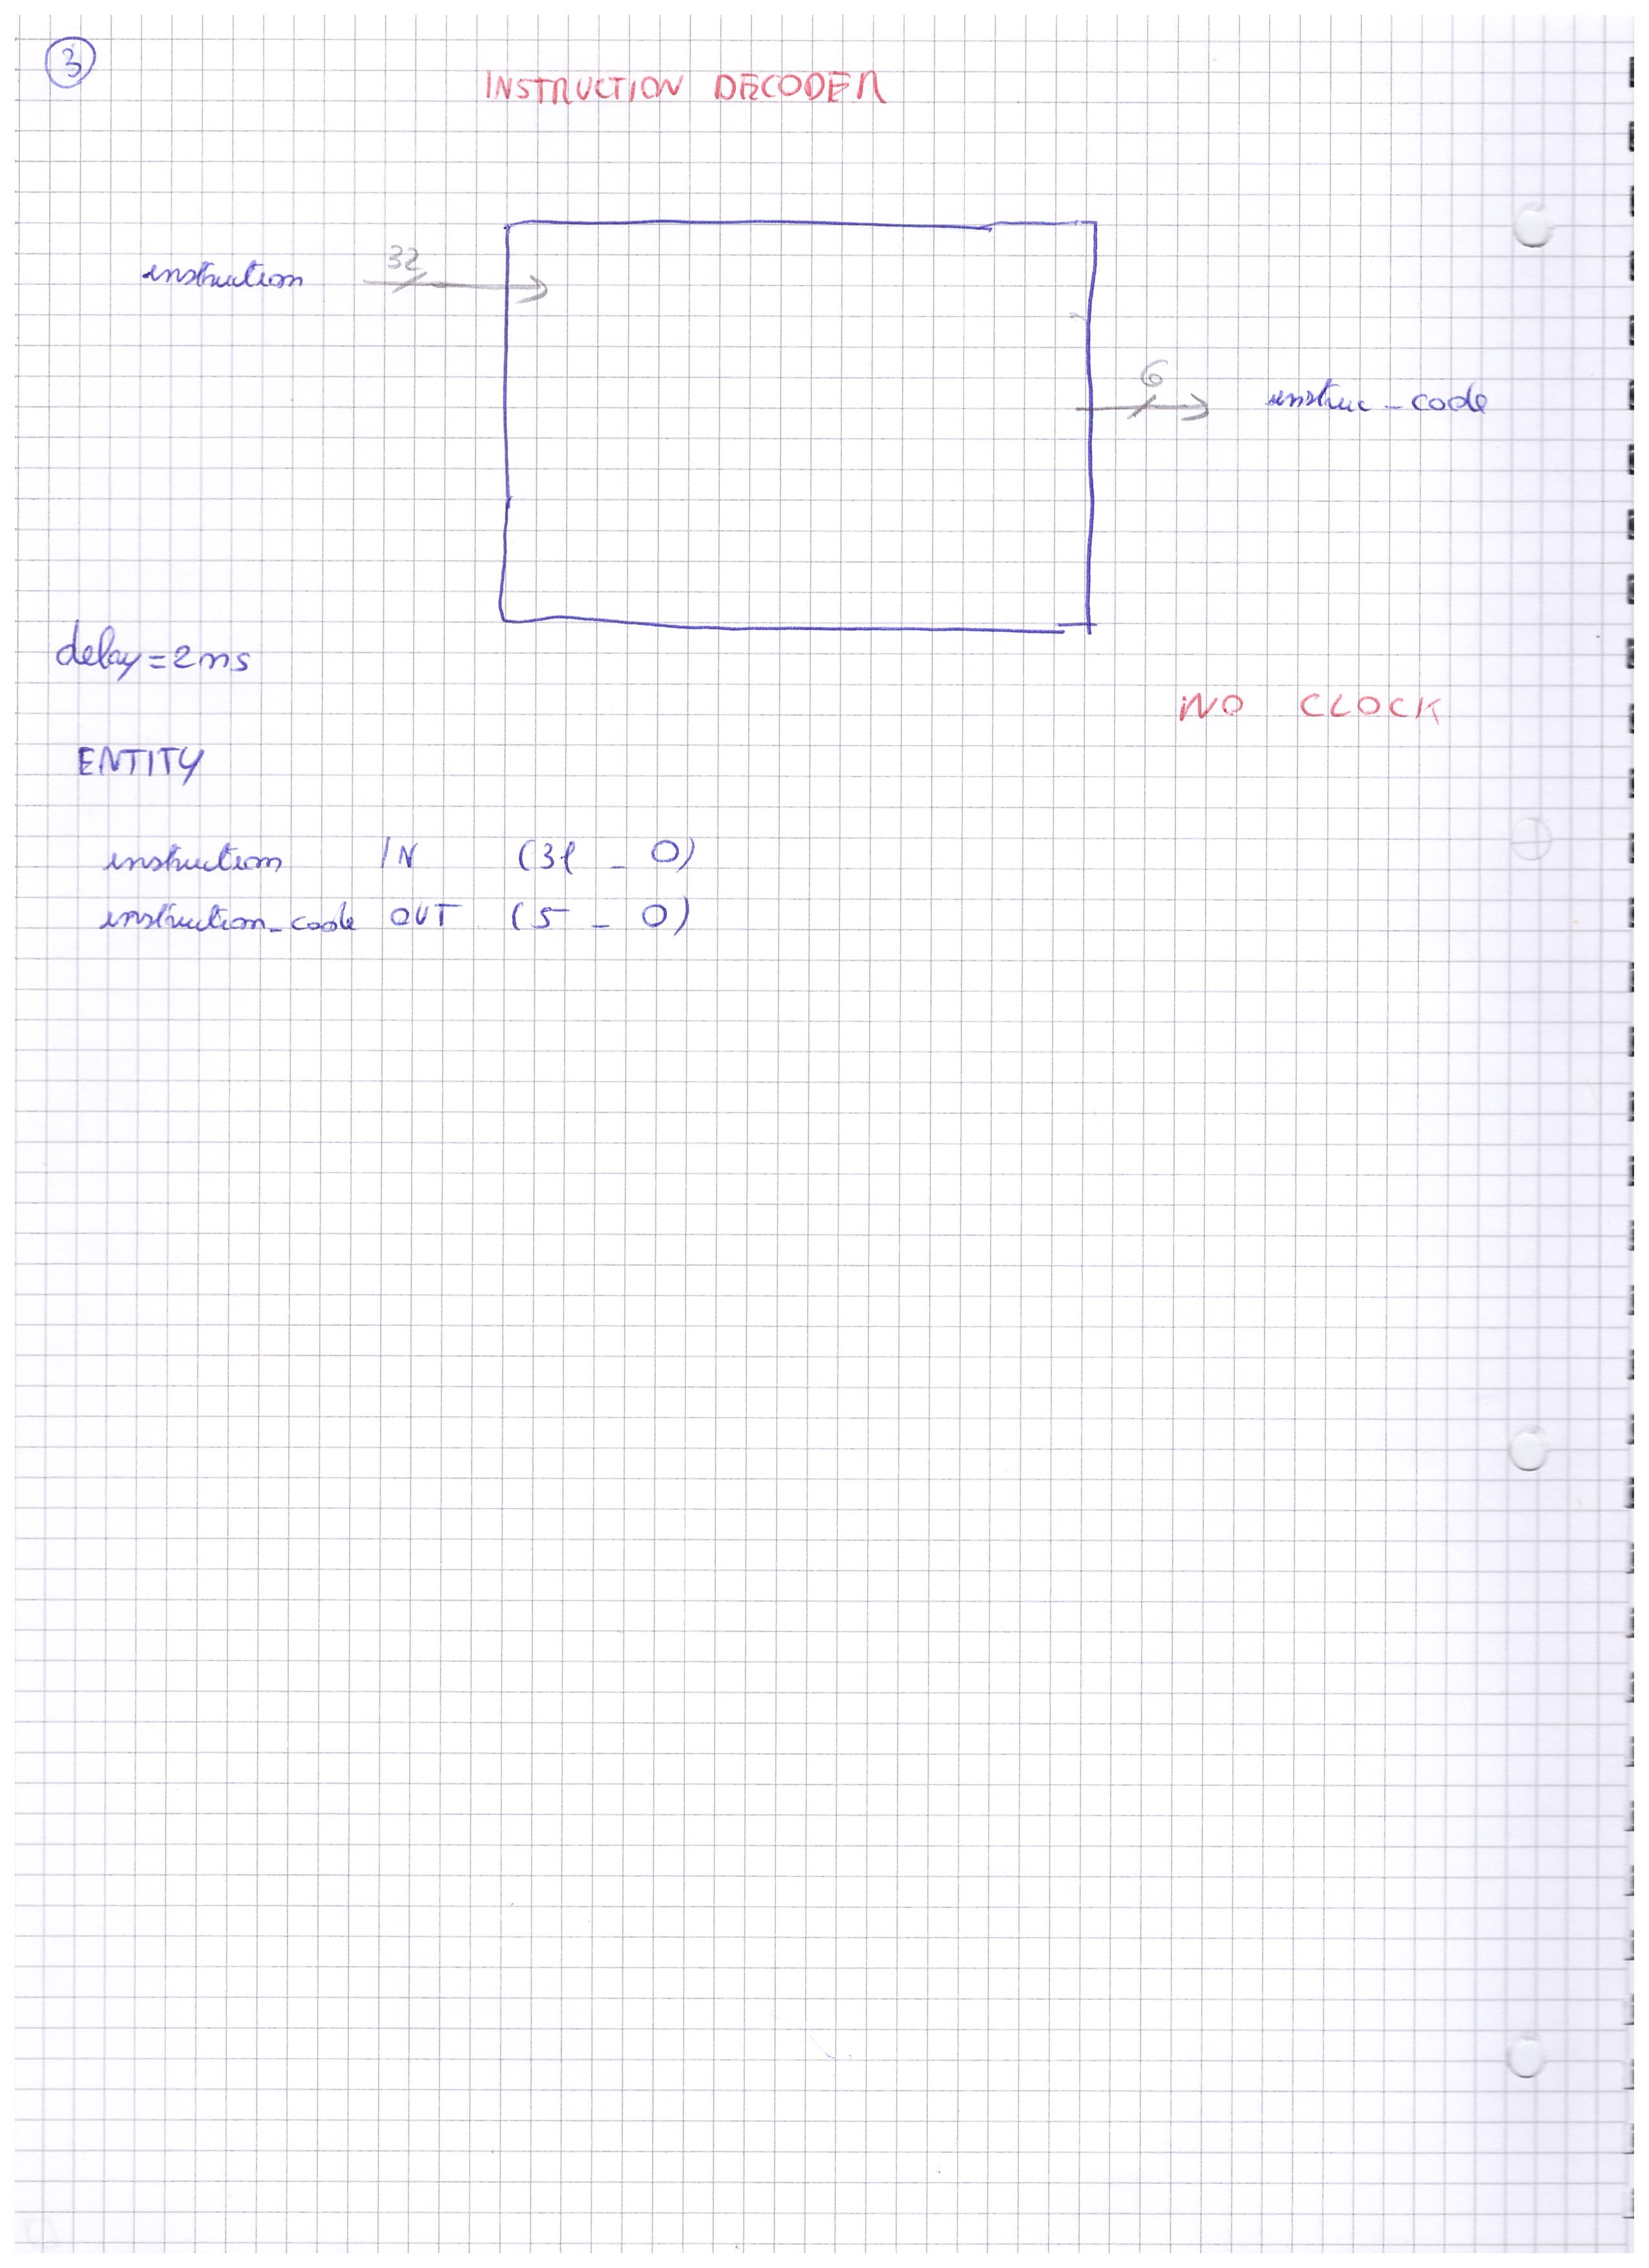 3
INSTRUCTION DECODER
instruction 32
6 instruc_code
delay=2ns
NO CLOCK
ENTITY
instruction IN (31 _ 0)
instruction_code OUT (5 _ 0)